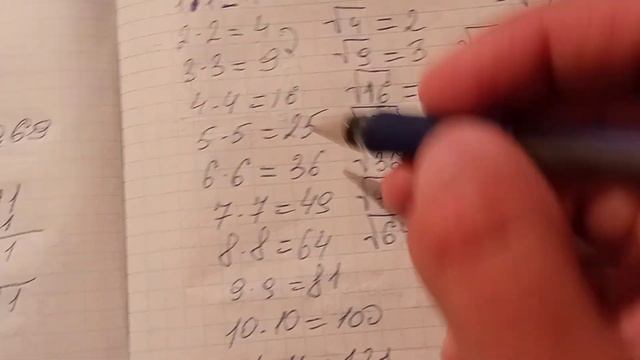 2·2=4 √4=2
3·3=9 √9=3
4·4=16 √16=
5·5=25
6·6=36 √36
7·7=49
8·8=64 √6
9·9=81
10·10=100